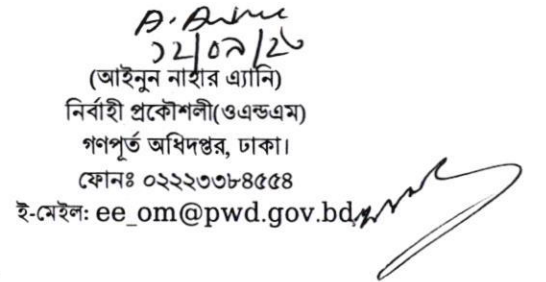 (আইনুন নাহার এ্যানি)
নির্বাহী প্রকৌশলী(ওএন্ডএম)
গণপূর্ত অধিদপ্তর, ঢাকা।
ফোনঃ ০২২২৩৩৮৪৫৫৪
ই-মেইল: ee_om@pwd.gov.bd